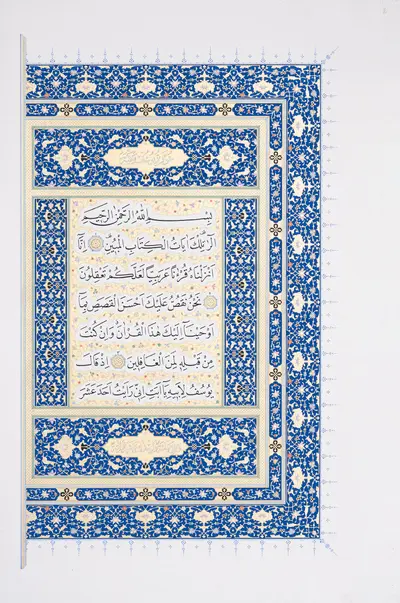 بِسْمِ اللّٰهِ الرَّحْمٰنِ الرَّحِيمِ
الٓرٰ تِلْكَ اٰيَاتُ الْكِتَابِ الْمُبِينِ اِنَّٓا
اَنْزَلْنَاهُ قُرْءٰنًا عَرَبِيًّا لَعَلَّكُمْ تَعْقِلُونَ
نَحْنُ نَقُصُّ عَلَيْكَ اَحْسَنَ الْقَصَصِ بِمَٓا
اَوْحَيْنَٓا اِلَيْكَ هٰذَا الْقُرْاٰنَ وَاِنْ كُنْتَ
مِنْ قَبْلِهٖ لَمِنَ الْغَافِلِينَ اِذْ قَالَ
يُوسُفُ لِاَبِيهِ يَٓا اَبَتِ اِنّٖى رَاَيْتُ اَحَدَ عَشَرَ